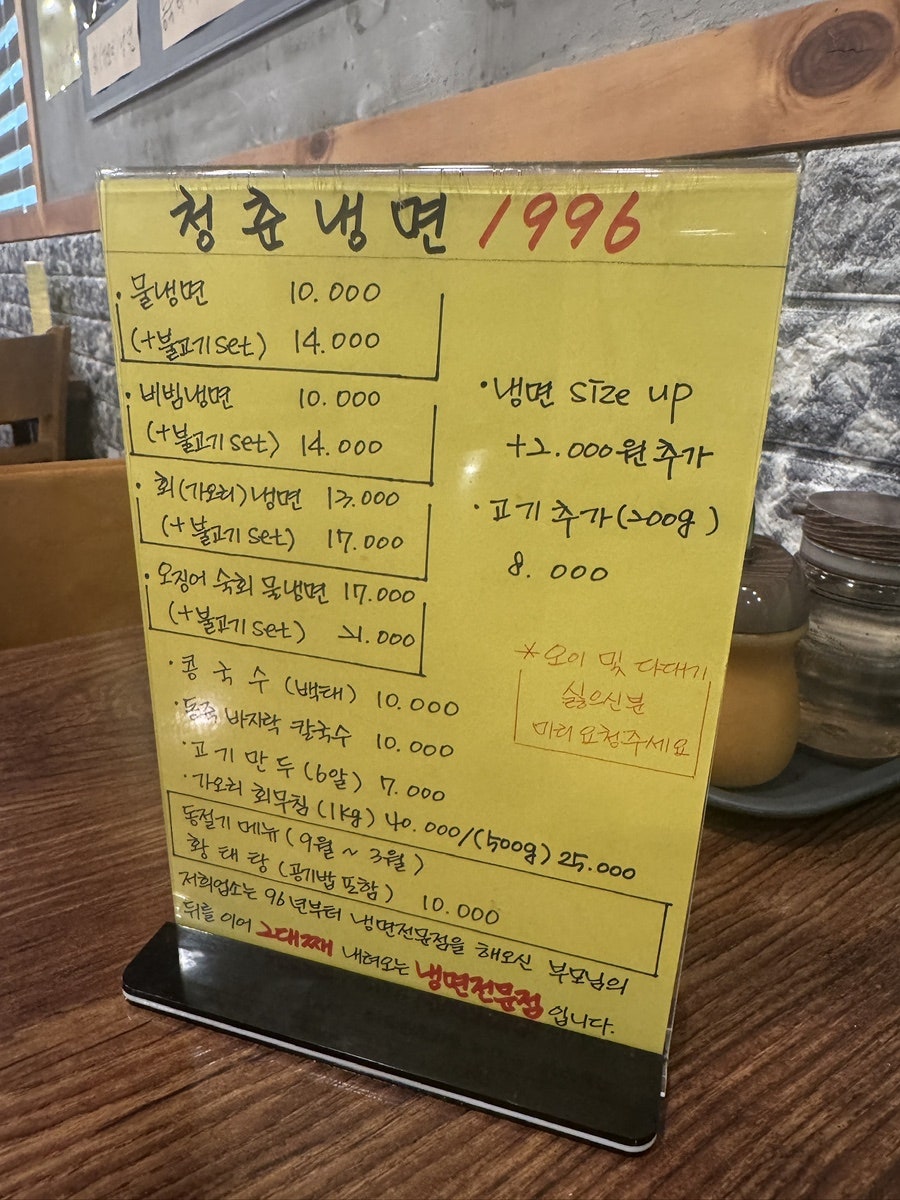 청춘냉면 1996
· 물냉면 10.000
(+불고기set) 14.000
· 비빔냉면 10.000
(+불고기set) 14.000
· 회(가오리)냉면 13.000
(+불고기set) 17.000
· 오징어 숙회 물냉면 17.000
(+불고기set) 21.000
· 콩국수 (백태) 10.000
· 동죽 바지락 칼국수 10.000
· 고기만두 (6알) 7.000
· 가오리 회무침 (1kg) 40.000/(500g) 25.000
동절기 메뉴 (9월 ~ 3월)
황태탕 (공기밥 포함) 10.000
저희업소는 96년부터 냉면전문점을 해오신 부모님의
뒤를 이어 2대째 내려오는 냉면전문점 입니다.
· 냉면 size up
+2.000원 추가
· 고기 추가 (200g)
8.000
* 오이 및 다대기
싫으신분
미리 요청주세요